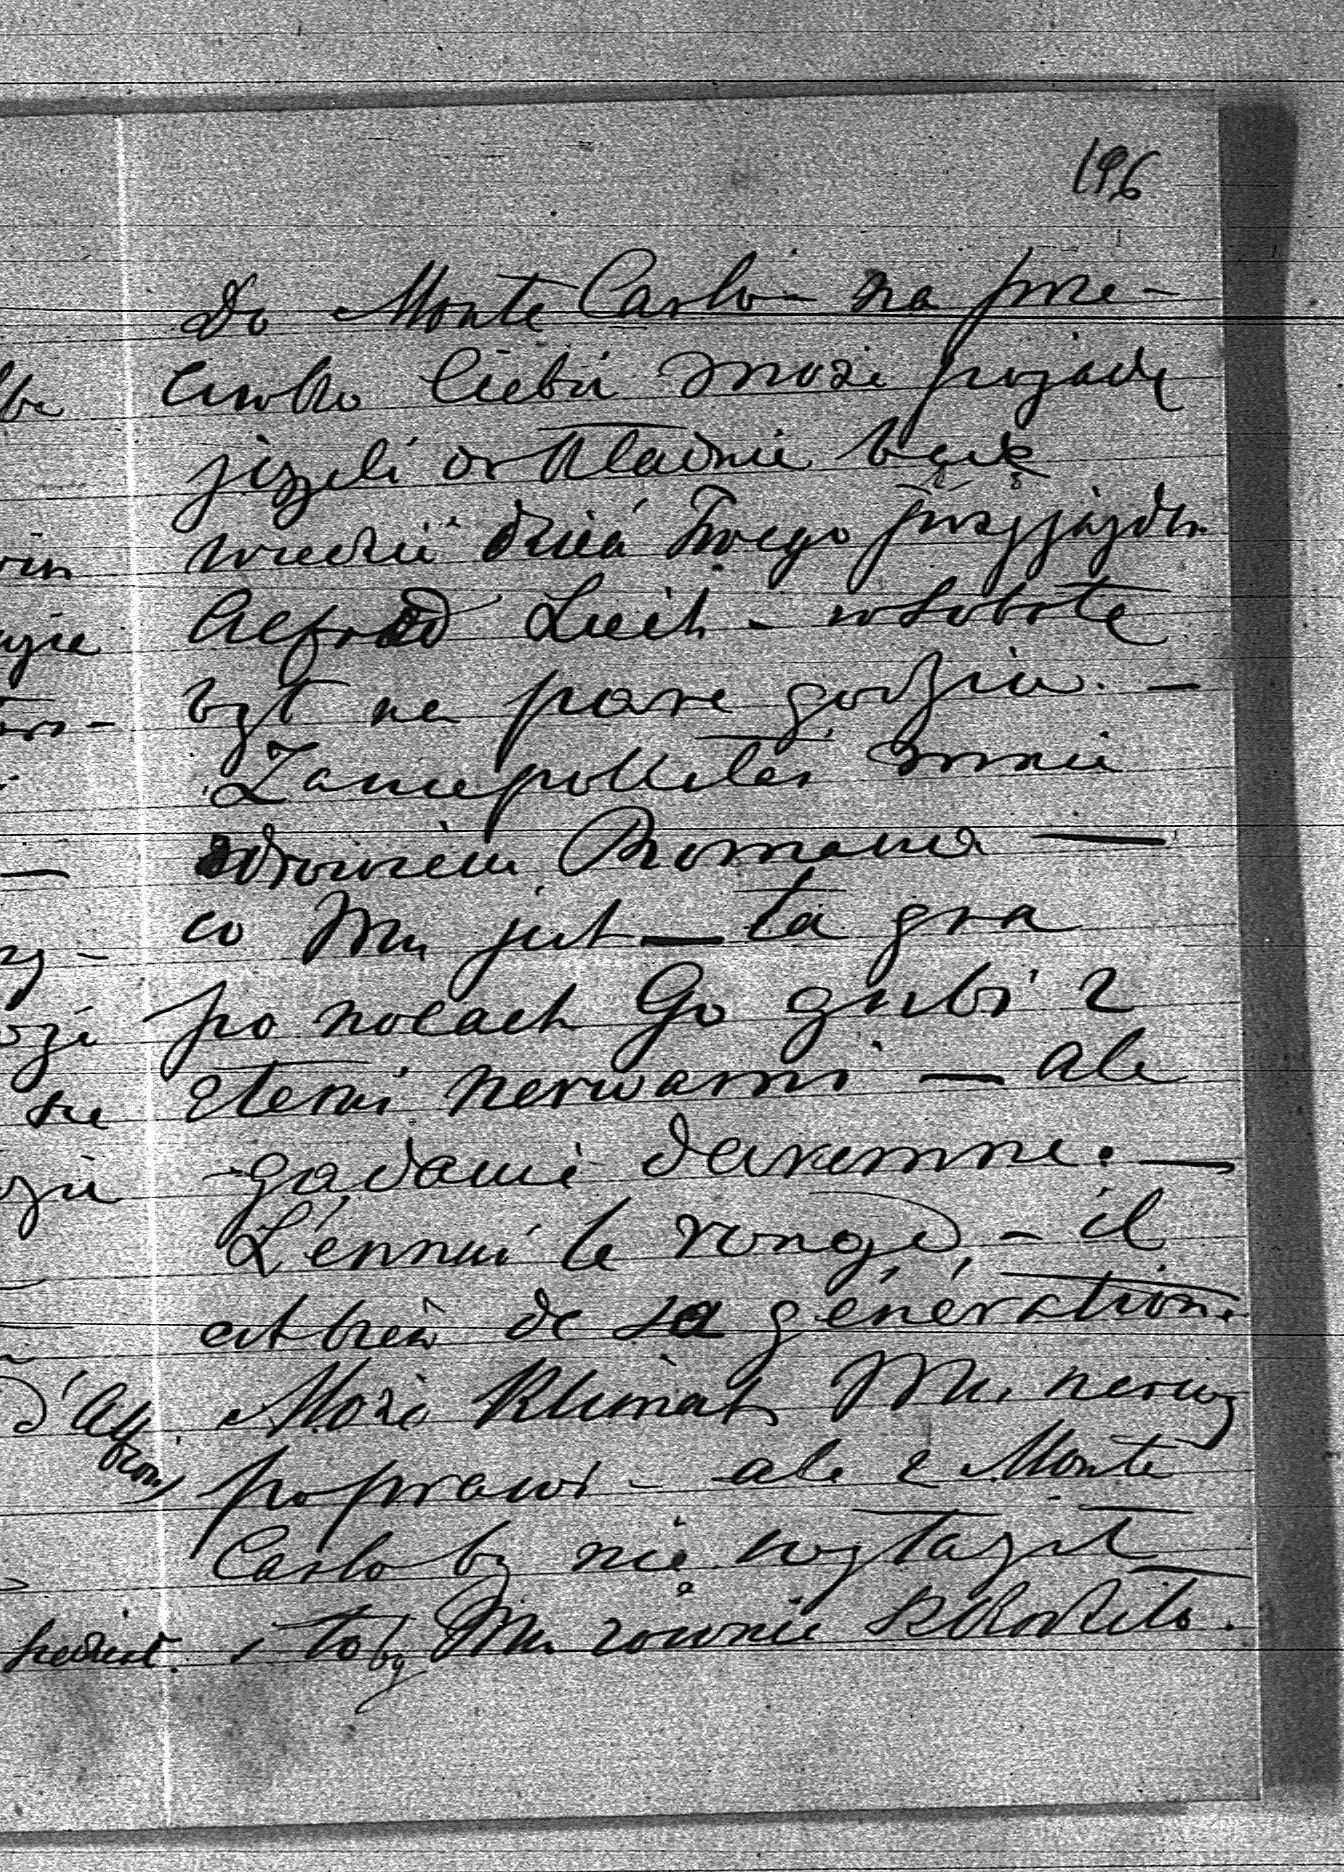 196
Do Monte Carlo na prze-
ciwko Ciebie może pojadę
jeżeli dokładnie będę
wiedzieć dzień Twego przyjazdu
Alfred w sobotę
był na parę godzin. —
Zaniepokoiłaś mnie
zdrowiem Romana —
co Mu jest — ta gra
po nocach Go gubi z
temi nerwami — ale
gadanie daremne. —
L'ennui le ronge, - il
est bien de sa génération.
Może klimat Mu nerwy
poprawi - ale z Monte
Carlo by nie wyłaził
i to by Mu równie szkodziło.
d'Alfrons